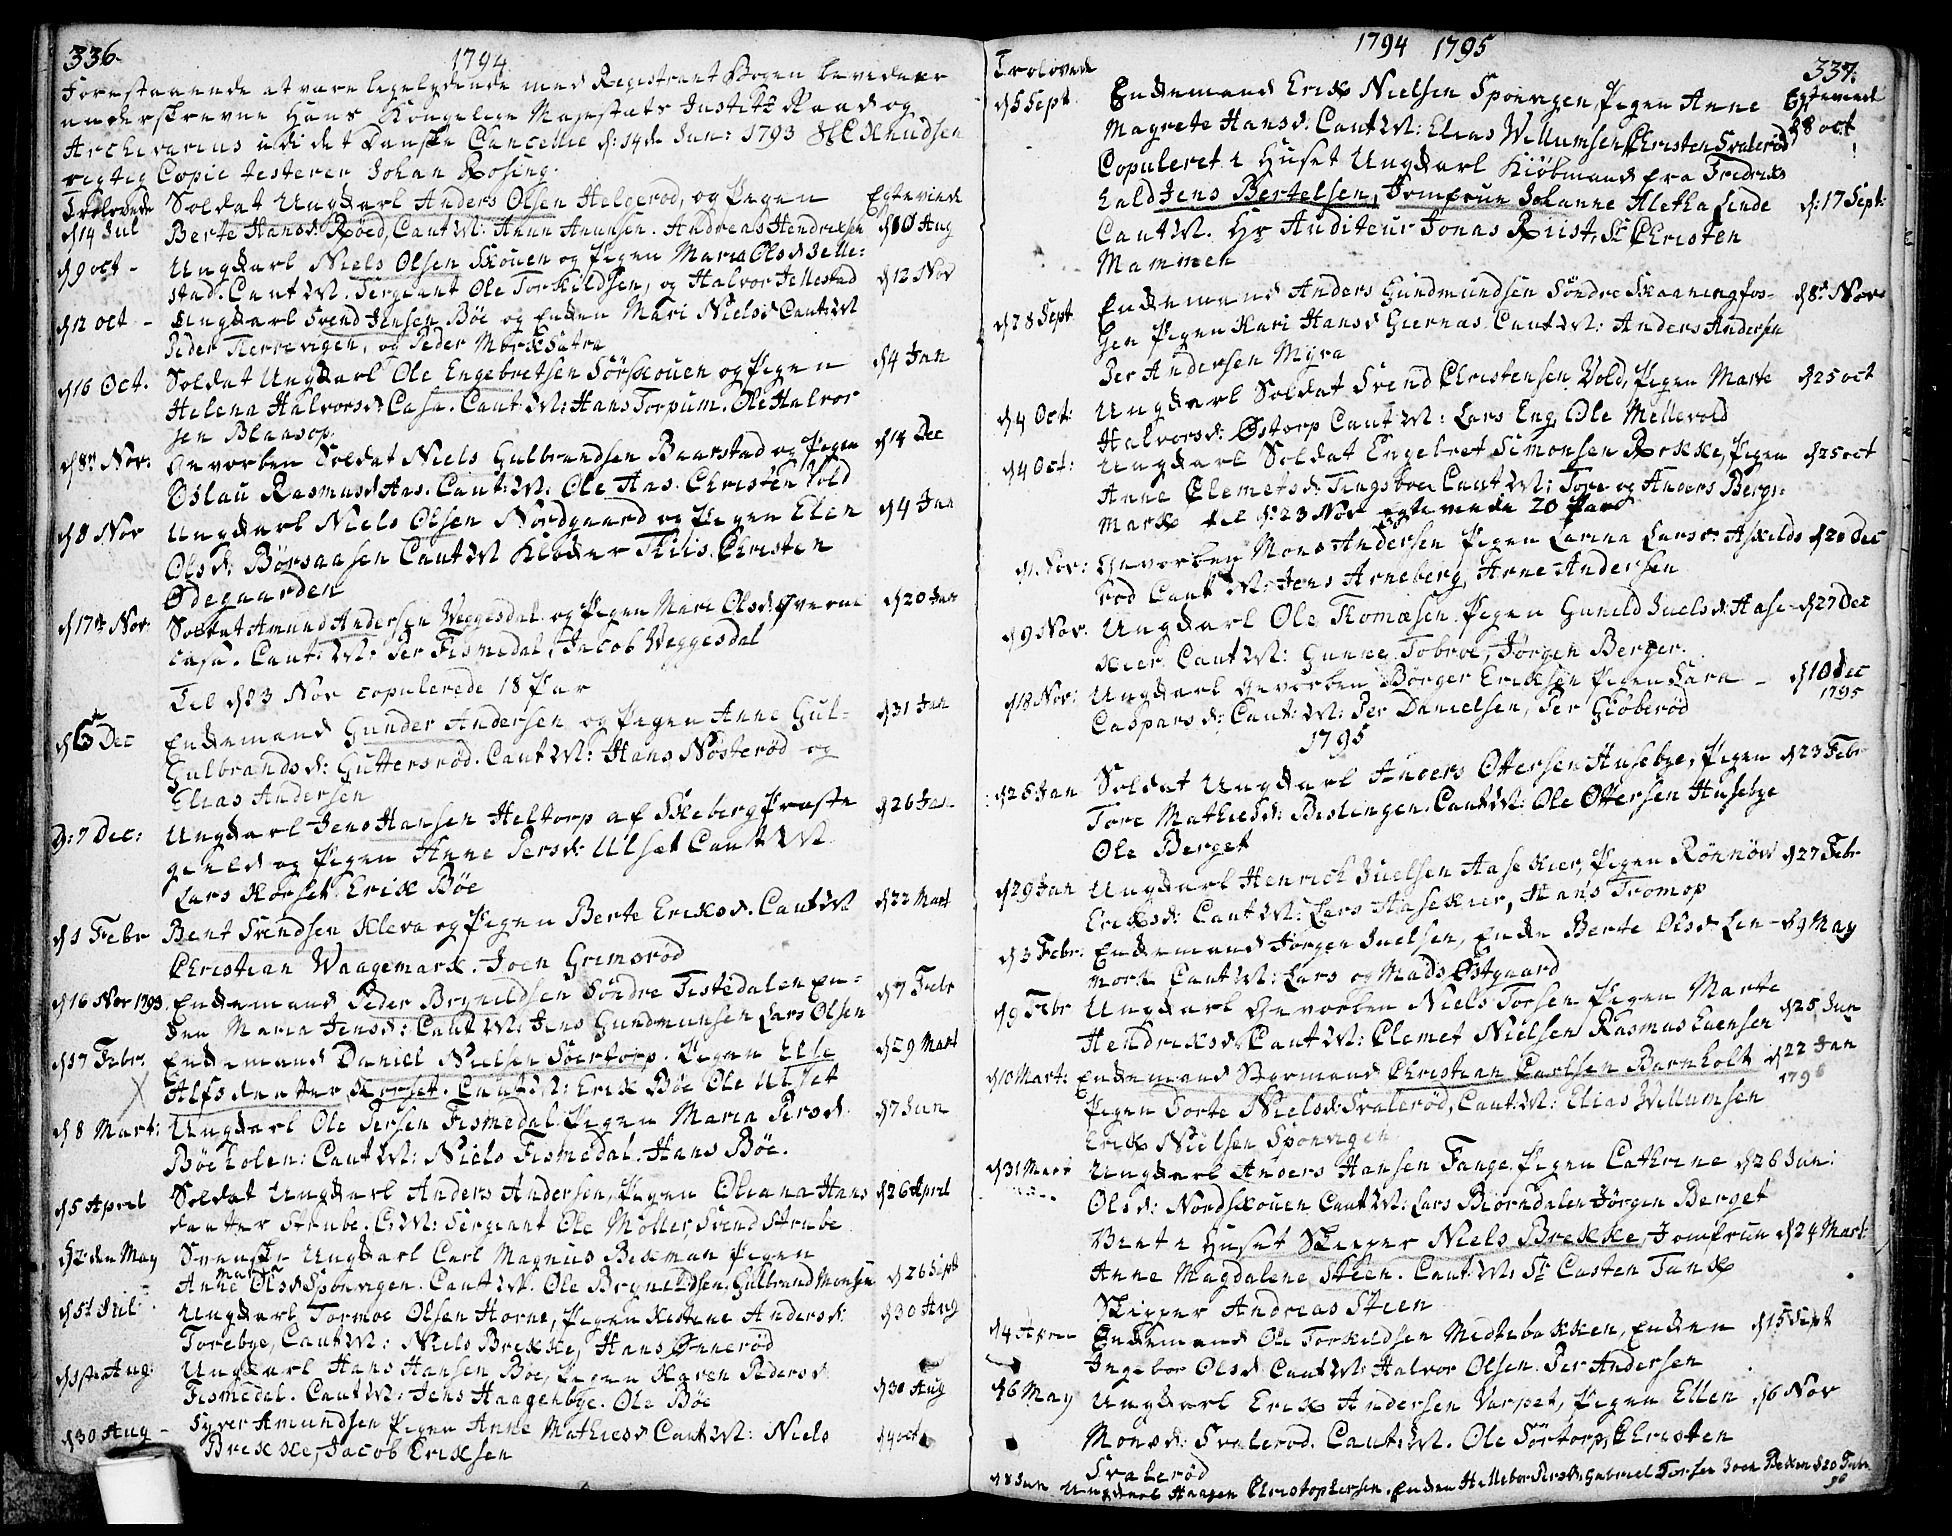 336.
1794
Forestaaende at være ligelydende med Registrant Bogen bevidner
underskrevne Hans Kongelige Majestæts Justitz Raad og
Archivarius udi det Danske Cancellie d: 14de Jun: 1793 Knudsen
rigtig Copie testerer Johan Rosing.
Trolovede Soldat Ungkarl Anders Olsen Helgerød, og Pigen Egteviede
d 14 Jul Berte Hansd: Røed, Caut M: Anun Anunsen. Andreas Hendrixsen d 10 Aug
d 9 oct - Ungkarl Niels Olsen Skouen og Pigen Maria Olsd Jelle-
stad. Caut M. Sergeant Ole Torkildsen, og Halvor Jellestad d 12 Nov
d 12 oct - Ungkarl Svend Jensen Böe og Enken Mari Nielsd Caut M
Peder Kerrevigen, og Peder Mörksätra
d 16 Oct. Soldat Ungkarl Ole Engebretsen Sörskouen og Pigen d 4 Jan
Helena Halvorsd Casa. Caut M: Hans Torpum. Ole Halvor
sen Blaasop.
d 8n Nov: Gevorben Soldat Niels Gulbrandsen Baarstad og Pigen d 14 Dec
Oslau Rasmusd Aas. Caut: M. Ole Aas. Christen Vold
d 8 Nov Ungkarl Niels Olsen Nordgaard og Pigen Elen d 4 Jan
Olsd: Börsaasen Caut M Klokker Thiis. Christen
Ödegaarden
d 17n Nov: Soldat Amund Andersen Veggesdal og Pigen Mari Olsd: Överne d 20 Jan
casa. Caut: M: Per Fismedal, Jacob Veggesdal
Til d 23 Nov copulerede 18 Par
d 6 Dec Enkemand Gunder Andersen og Pigen Anne Gul- d 31 Jan
Gulbrandsd: Guttersröd. Caut M: Hans Nösteröd og
Elias Andersen
D: 7 Dec: Ungkarl Jens Hansen Heltorp af Skeberg Præste d 26 Jan
gield og Pigen Anne Persd: Ulset Caut M
Lars Korset. Erik Böe
d 1 Febr Bent Svendsen Kleva og Pigen Berte Eriksd. Caut M d 22 Mart
Christian Waagemark. Joen Grimsröd
d 16 Nov 1793. Enkemand Peder Brynildsen Söndre Tistedalen En- d 7 Febr
ken Maria Jensd: Caut M: Jens Gundmunsen Lars Olsen
d 17 Febr. Enkemand Daniel Nielsen Soertorp. Pigen Else d 29 Mart
X Alfsdaatter Korset. Caut M: Erik Böe Ole Ulset
d 8 Mart: Ungkarl Ole Persen Fismedal Pigen Maria Persd. d 7 Jun
Böeholen: Caut M: Niels Fismedal. Hans Böe.
d 5 April Soldat Ungkarl Anders Andersen, Pigen Oleana Hans d 26 April
daatter Strube. C. M: Sergeant Ole Möller, Svend Strube
d 2den May Svenske Ungkarl Carl Magnus Bekman Pigen
Anne Maria Olsd Sponvigen. Caut M. Ole Brynildsen. Gulbrand Monsen d 26 Sept
d 5t Jul Ungkarl Tormoe Olsen Horne, Pigen Kistene Andersd: d 30 Aug
Torebye, Caut M: Niels Brekke, Hans Önneröd
d 1ste Aug: Ungkarl Hans Hansen Böe, Pigen Karen Pedersd.
Fismedal. Caut M: Jens Haagenbye. Ole Böe d 30 Aug
d 30 Aug - Syver Amundsen Pigen Anne Mathiesd Caut M: Niels d 4 oct
Brekke, Jacob Eriksen
1794 1795
337.
Trolovede
d 5 Sept Enkemand Erik Nielsen Sponvigen Pigen Anne Egteviede
Magrete Hansd. Caut M: Elias Willumsen, Christen Svaleröd d 8 oct
Copuleret i Huset Ungkarl Kiöbmand fra Fredriks
hald Jens Bertelsen, Jomfrue Johanne Aletha Linde d: 17 Sept:
Caut M. Hr Auditeur Jonas Riist, Sr Christen
Mammen
d 28 Sept Enkemand Anders Gundmundsen Söndre Skaaningfos- d 8n Nov
gen Pigen Kari Hansd Giernæs. Caut M: Anders Andersen
Per Andersen Myra
d 4 Oct: Ungkarl Soldat Svend Christensen Vold, Pigen Marte d 25 oct
Halvorsd: Östorp Caut M: Lars Eng, Ole Mellevold
d 4 Oct: Ungkarl Soldat Engebret Simonsen Rokke, Pigen d 25 oct
Anne Clemetsd: Tingsboe Caut M: Tore og Anders Berge
Mark til d: 23 Nov egteviede 20 Par
d 1 Nov: Gevorben Mons Andersen Pigen Larina Larsd: Askilds d 20 Dec
röd Caut M: Jens Arneberg, Arne Andersen
d 9 Nov. Ungkarl Ole Thomæsen Pigen Gunild Juelsd: Aase- d 27 Dec
kier Caut M: Gunne Tobroe, Jörgen Berger.
d 18 Nov: Ungkarl Gevorben Börger Eriksen Pigen Sara - d 10 Dec
Caspersd: Caut: M: Per Danielsen, Per Giöberöd 1795
1795
d 25 Jan Soldat Ungkarl Anders Ottersen Husebye, Pigen d 23 Febr
Tore Mathiesd: Bislingen. Caut M: Ole Ottersen Husebye
Ole Berget
d 29 Jan Ungkarl Henrich Juelsen Aasekier, Pigen Rönnöw d 27 Febr
Eriksd: Caut M: Lars Aasekier, Hans Tromop
d 3 Febr. Enkemand Jörgen Juelsen, Enke Berte Olsd Len- d 9 May
mork Caut M: Lars og Mads Östgaard
d 9 Febr Ungkarl Gevorben Niels Torsen Pigen Marte
Hendriksd Caut M: Clemet Nielsen Rasmus Evensen d 25 Jun
d 10 Mart: Enkemand Styrmand Christian Carlsen Barnholt d 22 Jan
Pigen Dorte Nielsd: Svaleröd, Caut. M: Elias Willumsen 1796
Erik Nielsen Sponvigen
d 31 Mart Ungkarl Anders Hansen Fange. Pigen Cathrine d 26 Jun:
Olsd: Nordskouen Caut M: Lars Biörndalen Jörgen Berget
Viet i Huset Skipper Niels Brekke, Jomfrue d 24 Mart
Anne Magdalene Steen. Caut: M: Sr Casten Tank
Skipper Andreas Steen
d 4 April Enkemand Ole Torkildsen Midtebakken, Enken d 15 Sept
Ingebor Olsd: Caut M: Halvor Olsen. Per Andersen
d 6 May Ungkarl Erik Andersen Varpet, Pigen Ellen d 6 Nov
Monsd: Svaleröd. Caut: M. Ole Sörtorp, Christen
Svaleröd
d 8 Jun Ungkarl Haagen Christophersen. Enken Hellebor Persd: Gabriel Torsen Joen Bekken d 20 Febr
96